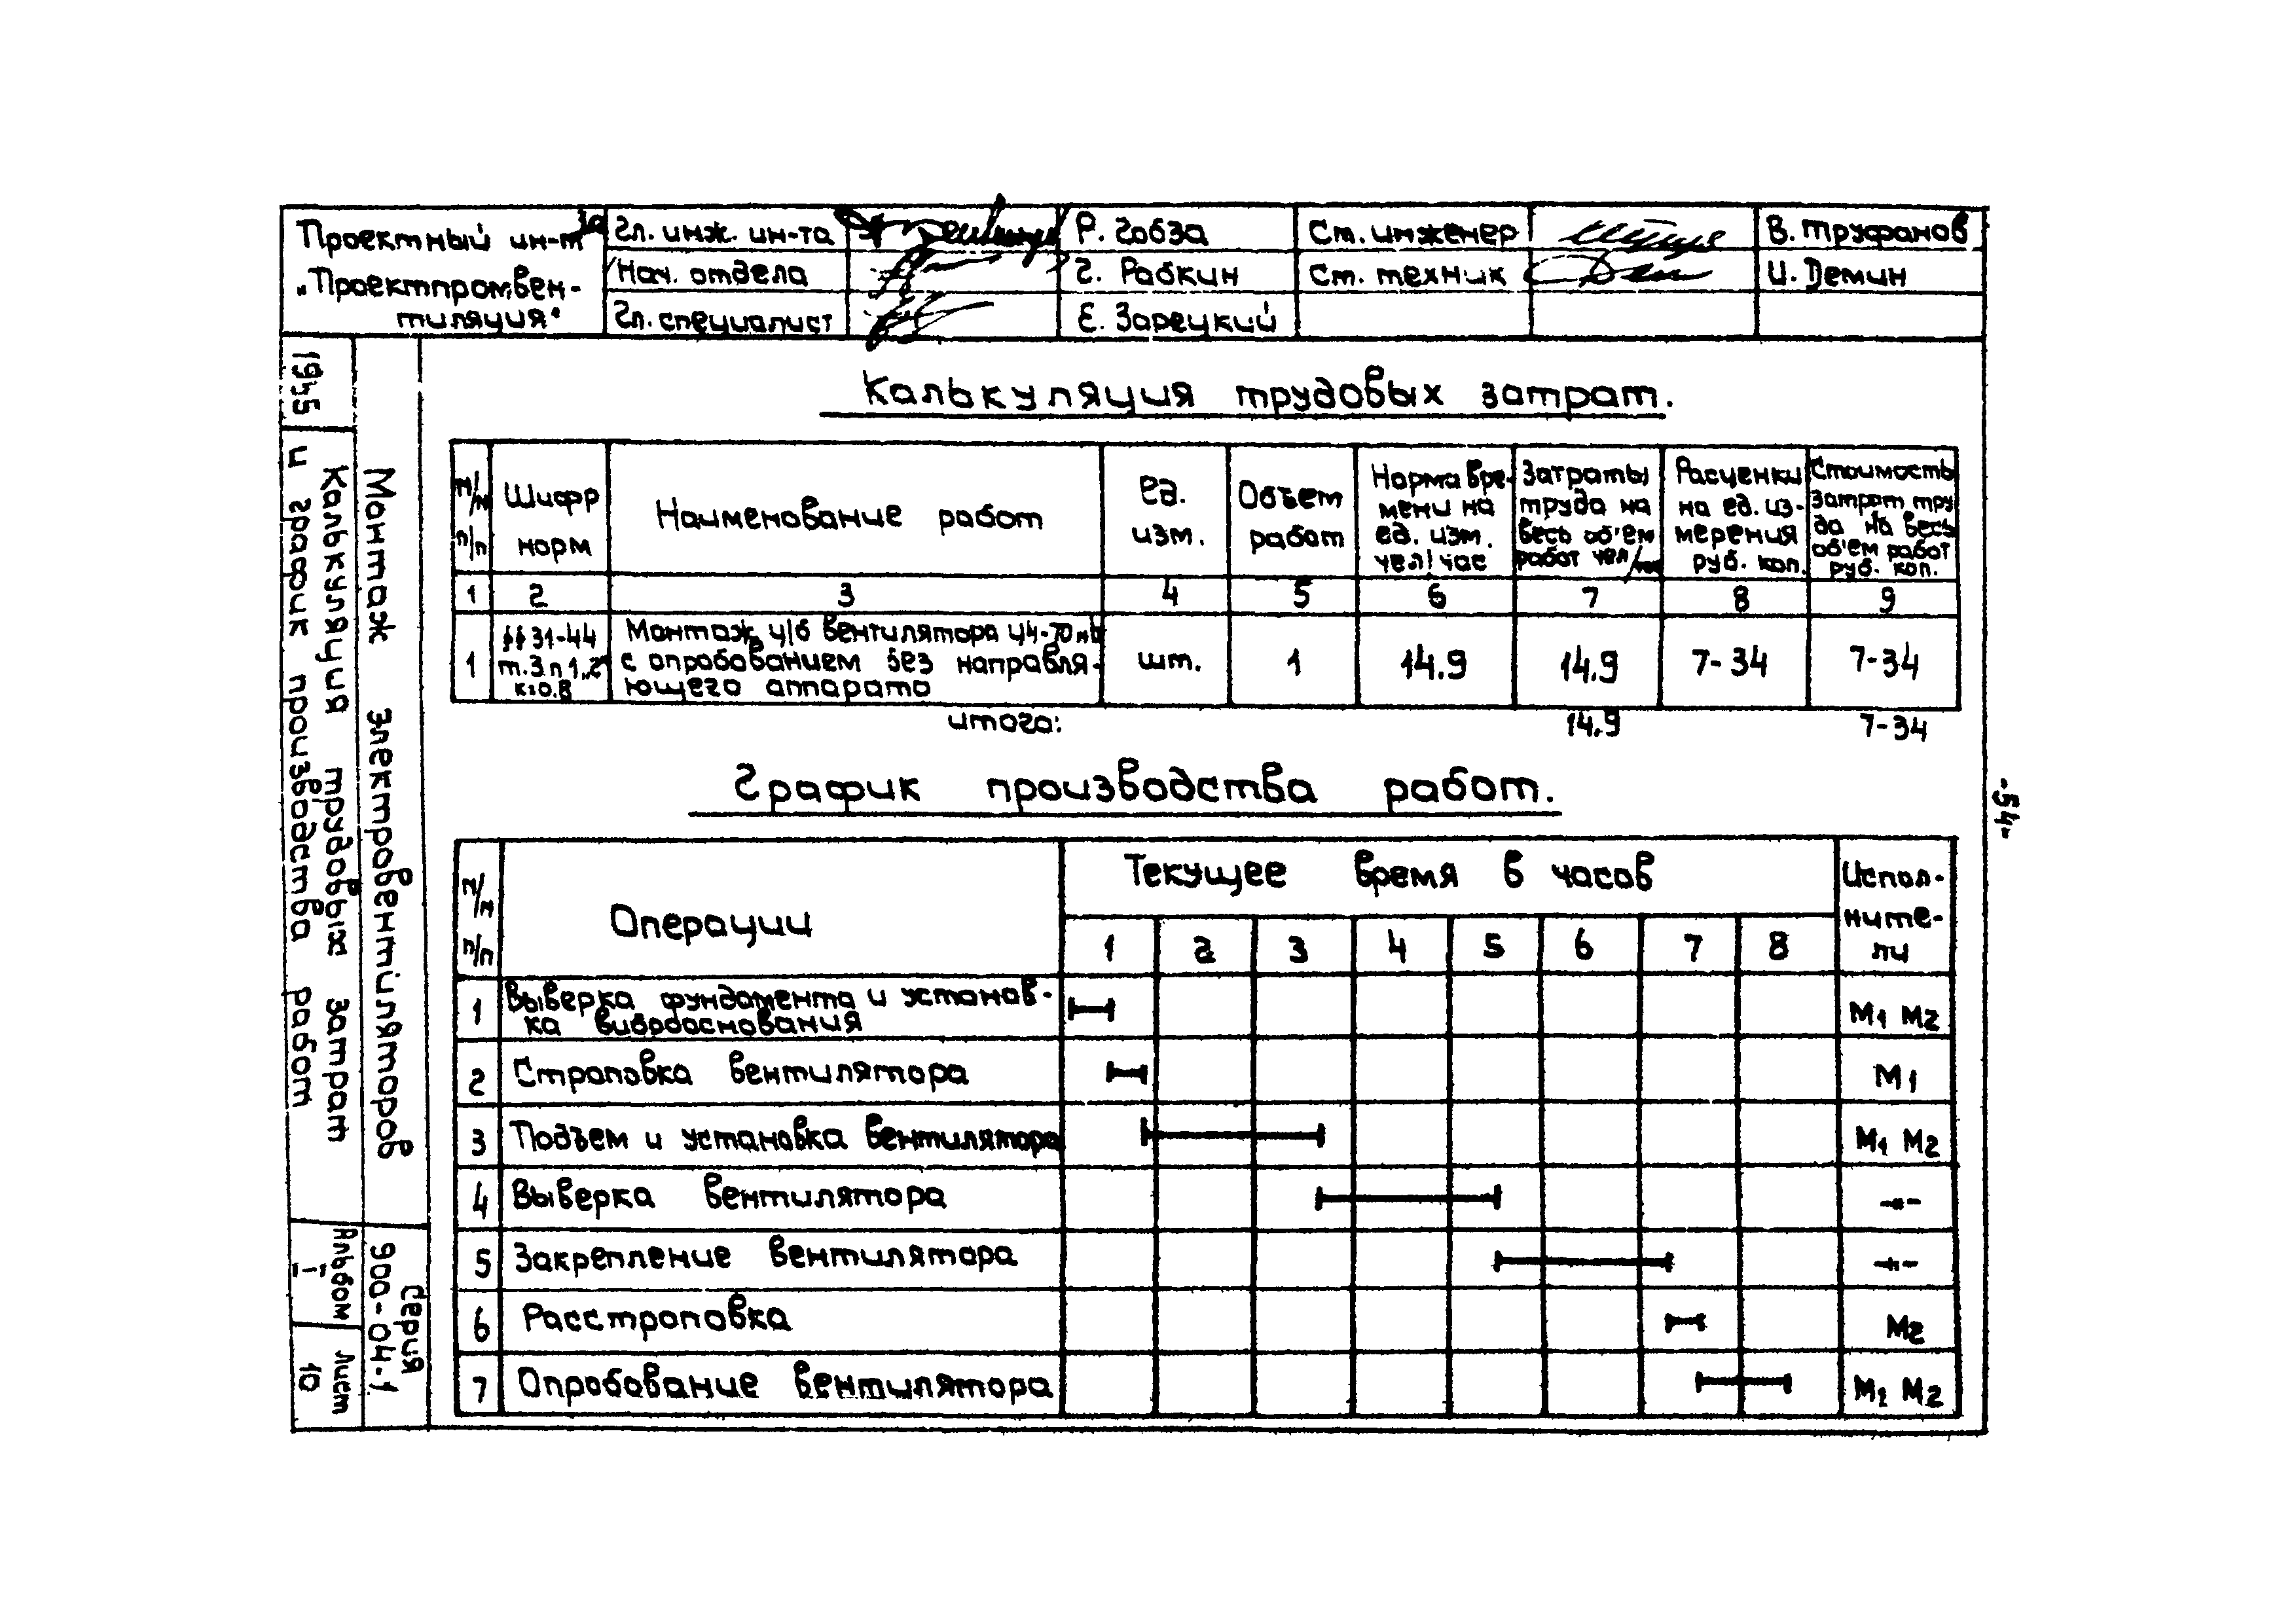 Проектный ин-т
„Проектпромвен-
тиляция"
Гл. инж. ин-та
Р. Гобза
Ст. инженер
В. Труфанов
Нач. отдела
Г. Рабкин
Ст. техник
И. Демин
Гл. специалист
Е. Зарецкий
Калькуляция трудовых затрат.
п/п
Шифр
норм
Наименование работ
ед.
изм.
Объем
работ
Норма вре-
мени на
ед. изм.
чел/час
Затраты
труда на
весь об'ем
работ чел/час
Расценки
на ед. из-
мерения
руб. коп.
Стоимость
затрат тру
да на весь
об'ем работ
руб. коп.
1 2 3 4 5 6 7 8 9
1
§§ 31-44
т.3 п 1
к=0.8
Монтаж ц/б вентилятора Ц4-70
с опробованием без направля-
ющего аппарата
шт.
1
14.9
14.9
7-34
7-34
итого: 14.9 7-34
График производства работ.
п/п
Операции
Текущее время в часов
Испол-
ните-
ли
1 2 3 4 5 6 7 8
1 Выверка фундамента и установ-
ка виброоснования
М1 М2
2 Строповка вентилятора М1
3 Подъем и установка вентилятора М1 М2
4 Выверка вентилятора -"-
5 Закрепление вентилятора -"-
6 Расстроповка М2
7 Опробование вентилятора М1 М2
Монтаж электровентиляторов
Калькуляция трудовых затрат
и график производства работ
Серия
900-04-1
Альбом
I
Лист
10
-54-